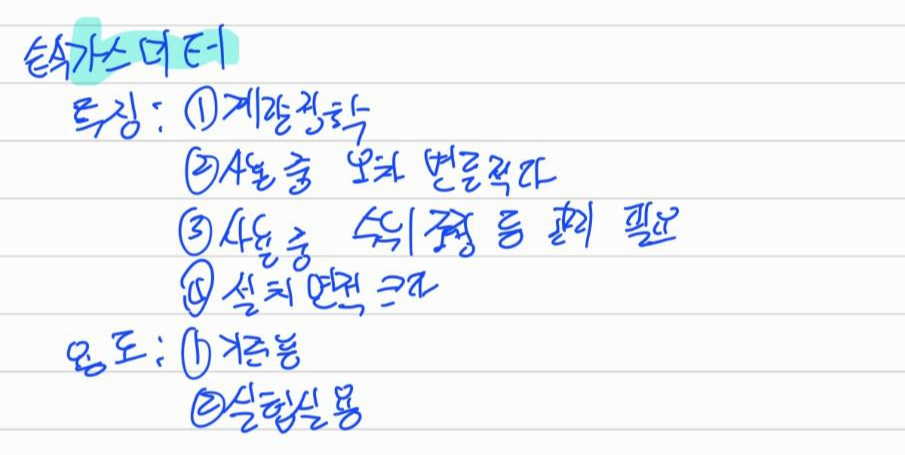 습식가스미터
특징: ①계량정확
②사용 중 오차 변동적다
③사용 중 수위 조정 등 관리 필요
④설치 면적 크다
용도: ①기준용
②실험실용